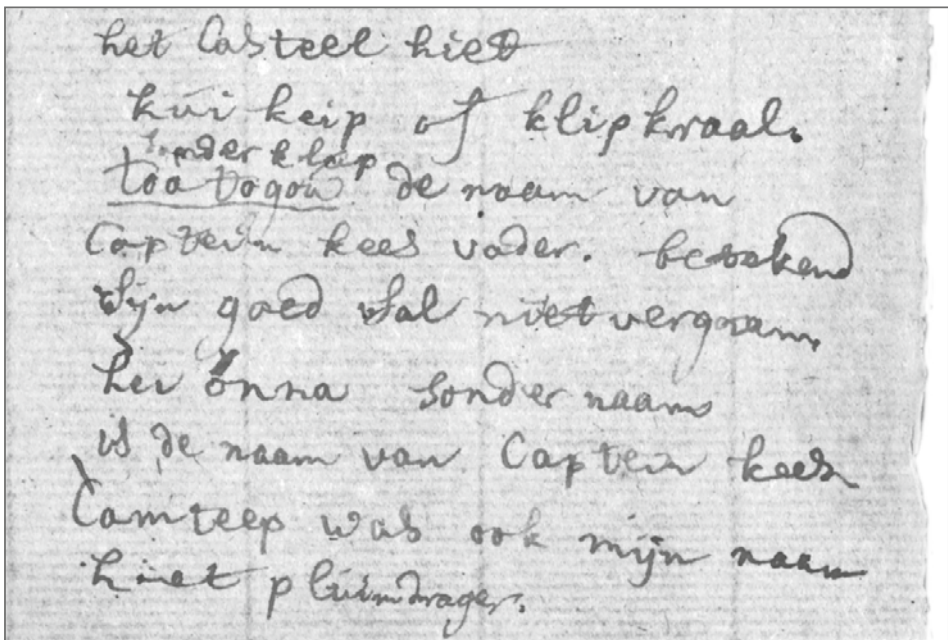 het Casteel hiet
kui keip of klipkraal.
sonder klap
toa togou de naam van
Captein kees vader. betekend
Sijn goed Sal niet vergaan
hei önna sonder naam
is de naam van Captein kees
Camteep was ook mijn naam
hiet pluimdrager.